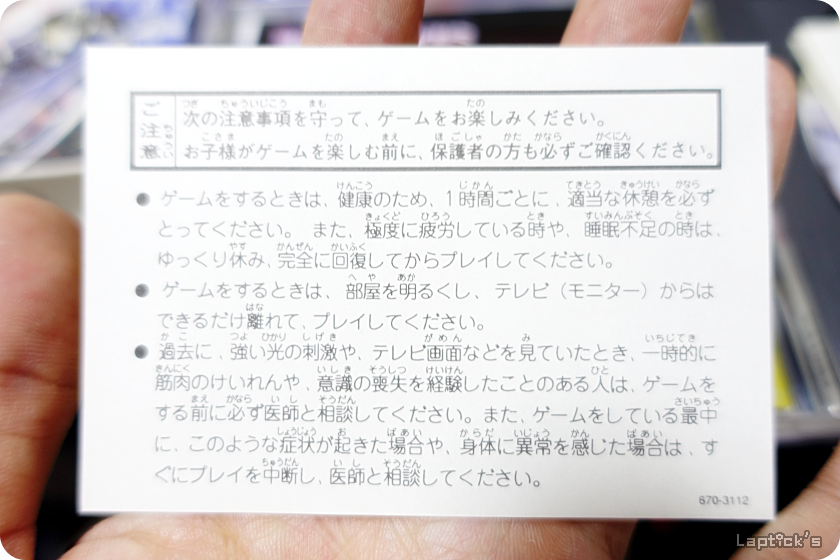 ご注意
次の注意事項を守って、ゲームをお楽しみください。
お子様がゲームを楽しむ前に、保護者の方も必ずご確認ください。
● ゲームをするときは、健康のため、1時間ごとに、適当な休憩を必ず
とってください。 また、極度に疲労している時や、睡眠不足の時は、
ゆっくり休み、完全に回復してからプレイしてください。
● ゲームをするときは、部屋を明るくし、テレビ（モニター）からは
できるだけ離れて、プレイしてください。
● 過去に、強い光の刺激や、テレビ画面などを見ていたとき、一時的に
筋肉のけいれんや、意識の喪失を経験したことのある人は、ゲームを
する前に必ず医師と相談してください。また、ゲームをしている最中
に、このような症状が起きた場合や、身体に異常を感じた場合は、す
ぐにプレイを中断し、医師と相談してください。
670-3112
Laptick's